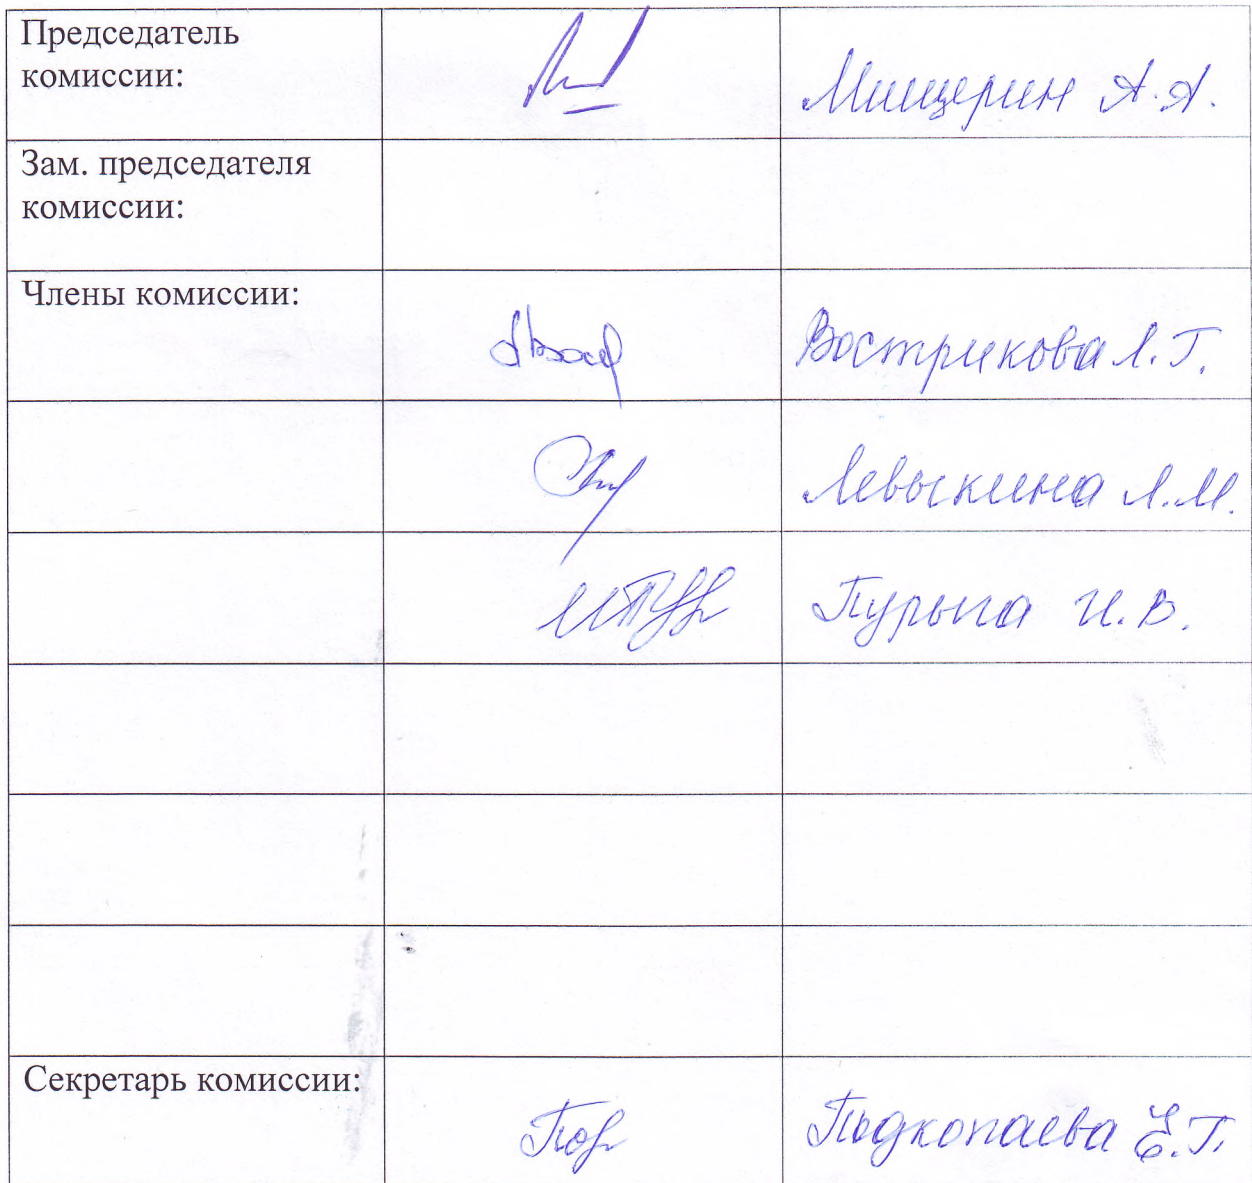 Председатель
комиссии:
Мищерин А.А.
Зам. председателя
комиссии:
Члены комиссии:
Вострикова Л.Г.
Левыкина Л.М.
Пурыга И.В.
Секретарь комиссии:
Подкопаева Е.П.